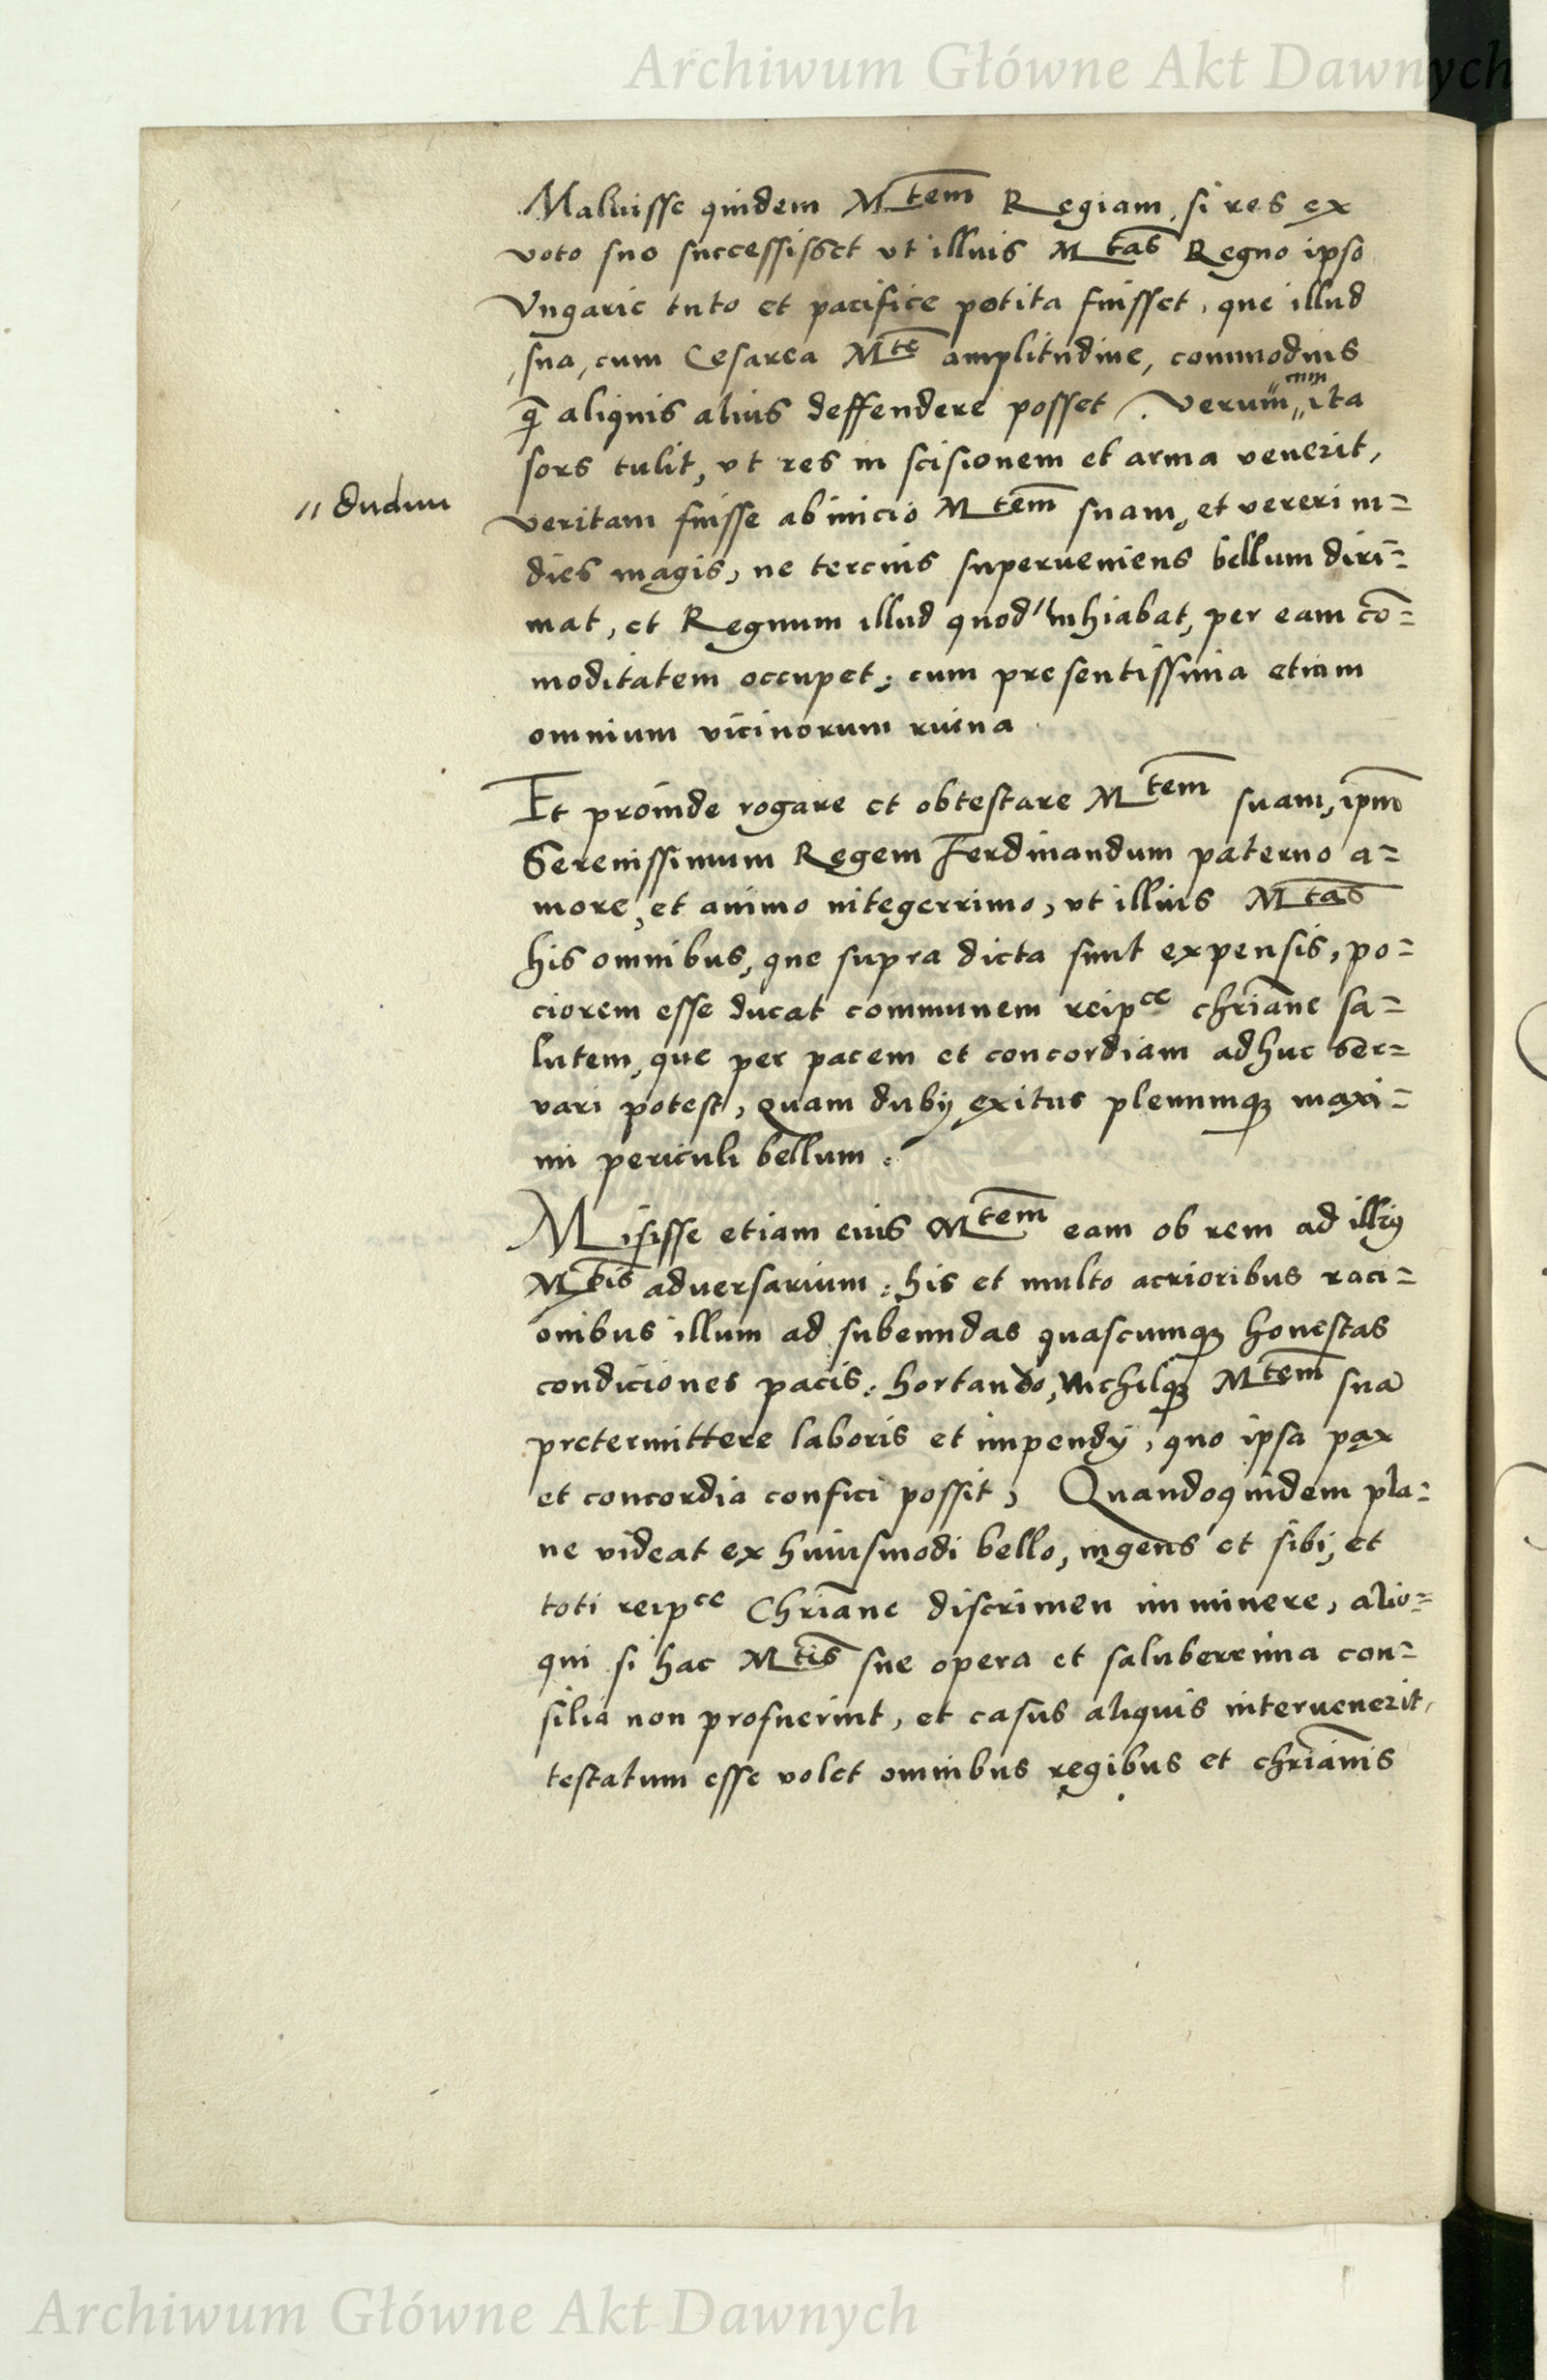 Archiwum Główne Akt Dawnych
Maluisse quidem Mtem Regiam, si res ex
voto suo successisset ut illius Mtas Regno ipso
Vngarie tuto et pacifice potita fuisset, que illud
sua, cum Cesarea Mte amplitudine, commodius
q̄ aliquis alius deffendere posset. Verum "cum" ita
sors tulit, vt res in scisionem et arma venerit,
"dudum
veritam fuisse ab inicio Mtem suam, et vereri in=
dies magis, ne tercius superueniens bellum diri=
mat, et Regnum illud quod" inhiabat, per eam cō=
moditatem occupet; cum presentissima etiam
omnium vicinorum ruina
Et proinde rogare et obtestare Mtem suam, ipm̄
Serenissimum Regem Ferdinandum paterno a=
more, et animo integerrimo, vt illius Mtas
his omnibus, que supra dicta sunt expensis, po=
ciorem esse ducat communem reipce chriāne sa=
lutem, que per pacem et concordiam adhuc ser=
vari potest, quam dubij exitus plenumqȝ maxi=
mi periculi bellum.
Misisse etiam eius Mtem eam ob rem ad illiꝰ
Mtis aduersarium, his et multo acrioribus raci=
onibus illum ad subeundas quascumqȝ honestas
condiciones pacis, hortando, Nichilqȝ Mtem suā
pretermittere laboris et impendij, quo ipsa pax
et concordia confici possit, Quandoquidem pla=
ne videat ex huiusmodi bello, ingens et sibi, et
toti reipce Chriāne discrimen imminere, alio=
qui si hac Mtis sue opera et saluberrima con=
silia non profuerint, et casus aliquis interuenerit,
testatum esse volet omnibus regibus et chriānis
Archiwum Główne Akt Dawnych